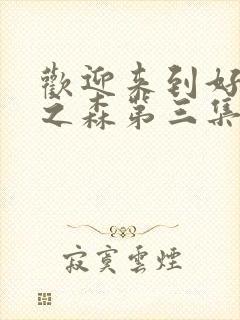 歡迎來到好
之森第三集
寂寞雲煙